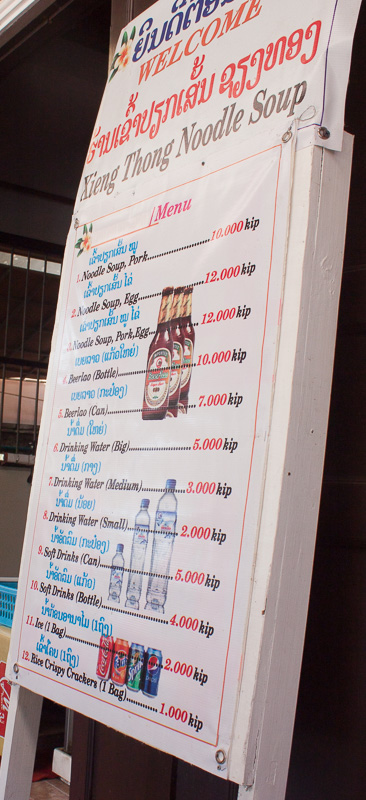 ຍິນດີຕ້ອນ
WELCOME
ຮ້ານເຂົ້າປຽກເສັ້ນ ຊຽງທອງ
Xieng Thong Noodle Soup
Menu
ເຂົ້າປຽກເສັ້ນ ໝູ
1. Noodle Soup, Pork..................10.000 kip
ເຂົ້າປຽກເສັ້ນ ໄຂ່
2. Noodle Soup, Egg..................12.000 kip
ເຂົ້າປຽກເສັ້ນ ໝູ ໄຂ່
3. Noodle Soup, Pork,Egg..............12.000 kip
ເບຍລາວ (ແກ້ວໃຫຍ່)
4. Beerlao (Bottle)..................10.000 kip
ເບຍລາວ (ກະປ໋ອງ)
5. Beerlao (Can)..................7.000 kip
ນ້ຳດື່ມ (ໃຫຍ່)
6. Drinking Water (Big)..................5.000 kip
ນ້ຳດື່ມ (ກາງ)
7. Drinking Water (Medium)..............3.000 kip
ນ້ຳດື່ມ (ນ້ອຍ)
8. Drinking Water (Small)..............2.000 kip
ນ້ຳອັດລົມ (ກະປ໋ອງ)
9. Soft Drinks (Can)..................5.000 kip
ນ້ຳອັດລົມ (ແກ້ວ)
10. Soft Drinks (Bottle)..............4.000 kip
ນ້ຳກ້ອນອານາໄມ (1ຖົງ)
11. Ice (1 Bag)..................2.000 kip
ເຂົ້າໂຄບ (1ຖົງ)
12. Rice Crispy Crackers (1 Bag)........1.000 kip